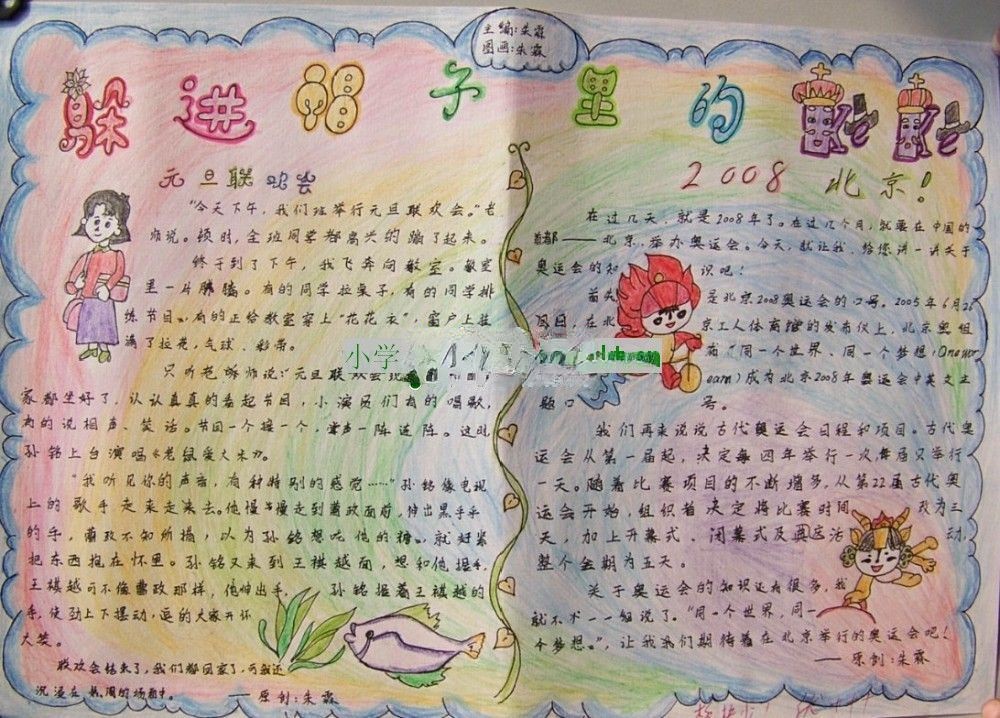 主编:朱霖
图画:朱霖
躲进帽子里的
元旦联欢会
“今天下午，我们班举行元旦联欢会。”老
师说。顿时，全班同学都高兴的蹦了起来。
终于到了下午，我飞奔向教室。教室
里一片沸腾。有的同学拉桌子，有的同学排
练节目，有的正给教室穿上“花花衣”，窗户上挂
满了拉花，气球、彩带。
只听老师说:“元旦联欢会
家都坐好了，认认真真的看起节目，小演员们有的唱歌，
有的说相声、笑话。节目一个接一个，掌声一阵连阵。这时
孙铭上台演唱《老鼠爱大米》。
“我听见你的声音，有种特别的感觉……”孙铭像电视
上的歌手走来走去。他慢慢走到曹政面前，伸出黑乎乎
的手，曹政不知所措，以为孙铭想吃他的糖，就赶紧
把东西抱在怀里。孙铭又来到王棋越面，想和他握手，
王棋越可不像曹政那样，他伸出手，孙铭握着王棋越的
手，使劲上下摆动，逗的大家开怀
大笑。
联欢会结束了，我们都回家了，可我还
沉浸在热闹的场面中。
——原创:朱霖
2008 北京!
在过几天，就是2008年了。在过几个月，就要在中国的
首都——北京，举办奥运会。今天，就让我，给您讲一讲关于
奥运会的知识吧！
首先 是北京2008奥运会的口号。2005年6月26
日，在北京工人体育馆的发布仪上，北京奥组
“同一个世界、同一个梦想（One wor
eam）成为北京2008年奥运会中英文主
题口号。
我们再来说说古代奥运会日程和项目。古代奥
运会从第一届起，决定每四年举行一次，每届又举行
一天。随着比赛项目的不断增多，从第22届古代奥
运会开始，组织者决定将比赛时间改为三
天，加上开幕式、闭幕式及 活动，
整个会期为五天。
关于奥运会的知识还有很多，我
就不术一一细说了。“同一个世界，同一
个梦想。”，让我我们期待着在北京举行的奥运会吧！
——原创:朱霖
小学